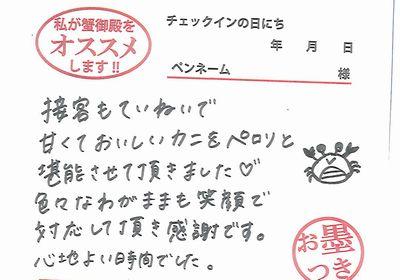 私が蟹御殿を
オススメ
します!!
チェックインの日にち
年 月 日
ペンネーム 様
接客もていねいで
甘くておいしいカニをペロリと
堪能させて頂きました♡
色々なわがままも笑顔で
対応して頂き感謝です。
心地よい時間でした。
お墨
つき